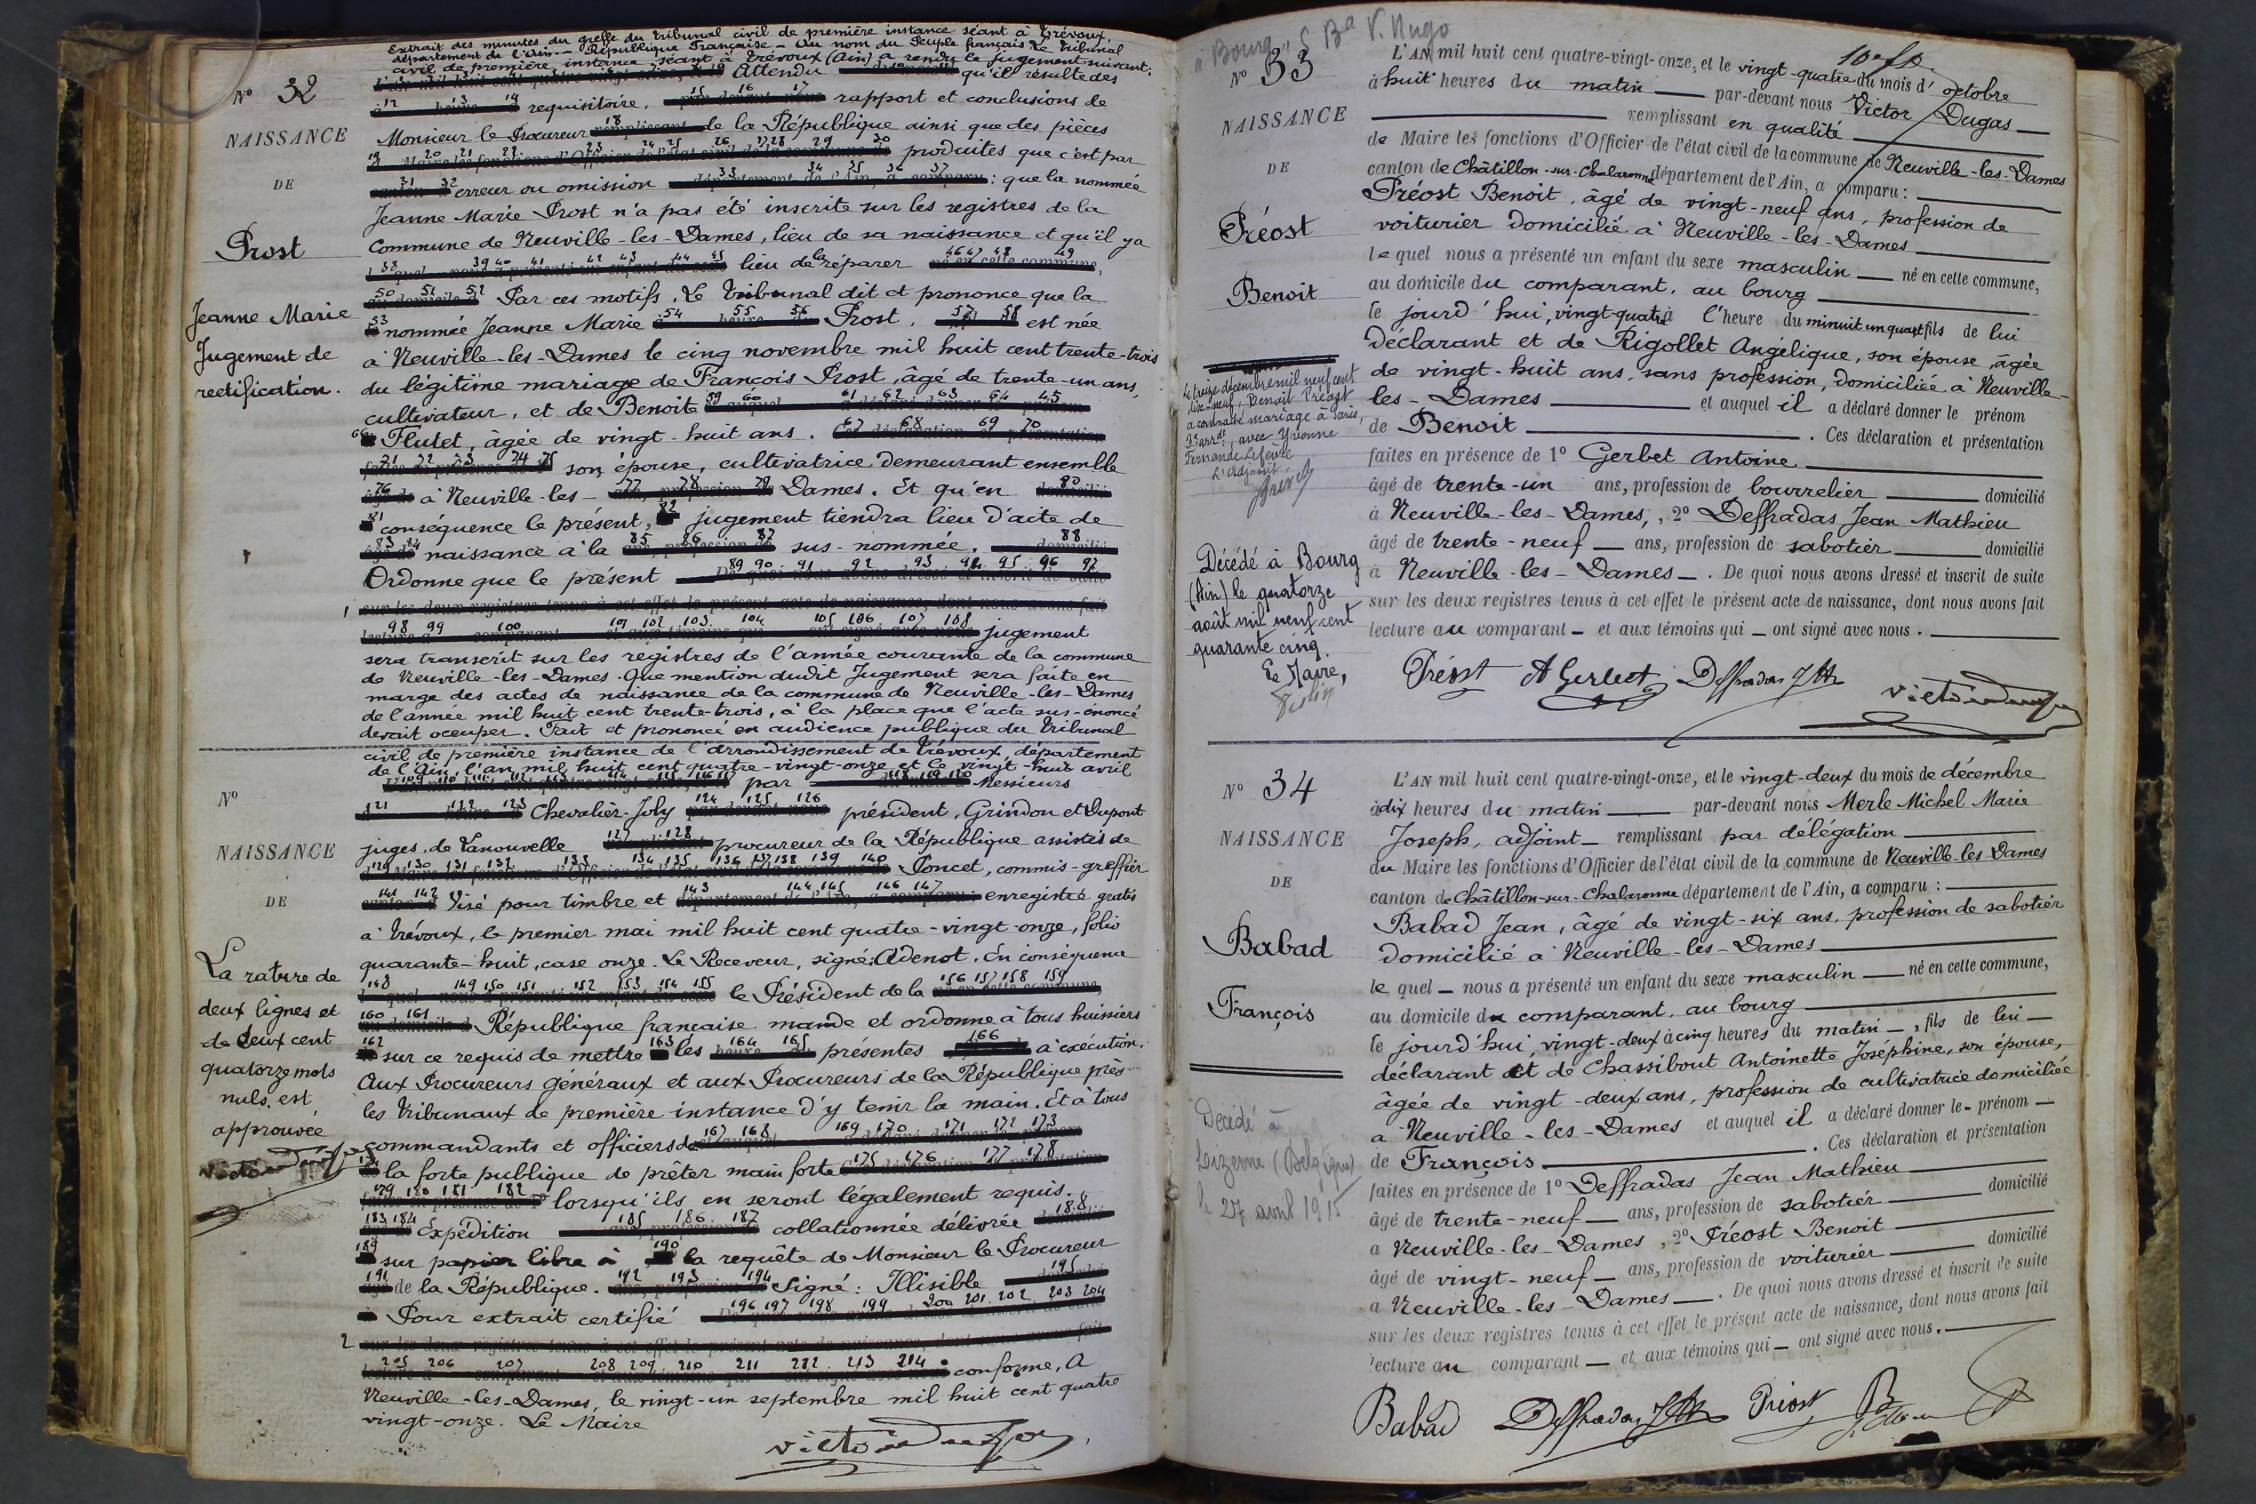 Extrait des minutes du greffe du Tribunal civil de première instance séant à Trévoux,
département de l'Ain. — République Française — Au nom du Peuple français Le Tribunal
civil de première instance séant à Trévoux (Ain) a rendu le jugement suivant:
Attendu qu'il résulte des
N° 32
requisitoire, rapport et conclusions de
NAISSANCE
Monsieur le Procureur de la République ainsi que des pièces
produites que c'est par
DE
erreur ou omission : que la nommée
Jeanne Marie Prost n'a pas été inscrite sur les registres de la
Prost
commune de Neuville-les-Dames, lieu de sa naissance et qu'il y a
lieu de le réparer
Par ces motifs, Le Tribunal dit et prononce que la
Jeanne Marie
nommée Jeanne Marie Prost, est née
Jugement de
à Neuville-les-Dames le cinq novembre mil huit cent trente-trois
rectification.
du légitime mariage de François Prost, âgé de trente-un ans,
cultivateur, et de Benoite
Flutet, âgée de vingt-huit ans.
son épouse, cultivatrice demeurant ensemble
à Neuville-les- Dames. Et qu'en
conséquence le présent, jugement tiendra lieu d'acte de
naissance à la sus-nommée.
Ordonne que le présent
1 sur les deux registres tenus à cet effet le présent acte de naissance, dont nous avons fait
jugement
sera transcrit sur les registres de l'année courante de la commune
de Neuville-les-Dames. Que mention dudit Jugement sera faite en
marge des actes de naissance de la commune de Neuville-les-Dames
de l'année mil huit cent trente-trois, à la place que l'acte sus-énoncé
devait occuper. Fait et prononcé en audience publique du Tribunal
civil de première instance de l'arrondissement de Trévoux, département
de l'Ain, l'an mil huit cent quatre-vingt-onze et le vingt-huit avril
par Messieurs
N°
Chevalier-Joly président, Grindon et Dupont
NAISSANCE
juges, de Vanouvelle procureur de la République assistés de
Poncet, commis-greffier
DE
Visé pour timbre et enregistré gratis
à Trévoux, le premier mai mil huit cent quatre-vingt-onze, folio
quarante-huit, case onze. Le Receveur, signé: Adenot. En conséquence
le Président de la
République française mande et ordonne à tous huissiers
sur ce requis de mettre les présentes à exécution.
Aux Procureurs généraux et aux Procureurs de la République près
les Tribunaux de première instance d'y tenir la main. Et à tous
commandants et officiers de
la forte publique de prêter main forte
lorsqu'ils en seront légalement requis.
Expédition collationnée délivrée
sur papier libre à la requête de Monsieur le Procureur
de la République. Signé: Illisible
Pour extrait certifié
2 sur les deux registres tenus à cet effet le présent acte de naissance, dont nous avons fait
conforme, A
Neuville-les-Dames, le vingt-un septembre mil huit cent quatre
vingt-onze. Le Maire
La rature de
deux lignes et
de deux cent
quatorze mots
nuls, est
approuvée
à Bourg, Bd V. Hugo
N° 33
NAISSANCE
DE
Préost
Benoit
Le treize décembre mil neuf cent
dix-neuf, Benoit Préost
a contracté mariage à Paris,
arrdt, avec Yvonne
Fernande Lefèvre
L'Adjoint,
Décédé à Bourg
(Ain) le quatorze
août mil neuf cent
quarante cinq.
Le Maire,
L'AN mil huit cent quatre-vingt-onze, et le vingt-quatre du mois d'octobre
à huit heures du matin — par-devant nous Victor Dugas —
remplissant en qualité
de Maire les fonctions d'Officier de l'état civil de la commune de Neuville-les-Dames
canton de Châtillon-sur-Chalaronne département de l'Ain, a comparu :
Préost Benoit, âgé de vingt-neuf ans, profession de
voiturier domicilié à Neuville-les-Dames
lequel nous a présenté un enfant du sexe masculin — né en cette commune,
au domicile du comparant, au bourg
le jourd'hui, vingt-quatre à l'heure du minuit un quart fils de lui
déclarant et de Rigollet Angélique, son épouse, âgée
de vingt-huit ans, sans profession, domiciliée à Neuville-
les-Dames — et auquel il a déclaré donner le prénom
de Benoit — . Ces déclaration et présentation
faites en présence de 1° Gerbet Antoine
âgé de trente-un ans, profession de bourrelier — domicilié
à Neuville-les-Dames, , 2° Deffradas Jean Mathieu
âgé de trente-neuf — ans, profession de sabotier — domicilié
à Neuville-les-Dames — . De quoi nous avons dressé et inscrit de suite
sur les deux registres tenus à cet effet le présent acte de naissance, dont nous avons fait
lecture au comparant — et aux témoins qui — ont signé avec nous .
Préost A Gerbet Deffradas J M
N° 34
NAISSANCE
DE
Babad
François
Décédé à
Lizerne (Belgique)
le 27 avril 1915
L'AN mil huit cent quatre-vingt-onze, et le vingt-deux du mois de décembre
à dix heures du matin — par-devant nous Merle Michel Marie
Joseph, adjoint — remplissant par délégation
du Maire les fonctions d'Officier de l'état civil de la commune de Neuville-les-Dames
canton de Châtillon-sur-Chalaronne département de l'Ain, a comparu :
Babad Jean, âgé de vingt-six ans, profession de sabotier
domicilié à Neuville-les-Dames
lequel — nous a présenté un enfant du sexe masculin — né en cette commune,
au domicile du comparant, au bourg
le jourd'hui, vingt-deux à cinq heures du matin — , fils de lui —
déclarant et de Chassibout Antoinette Joséphine, son épouse,
âgée de vingt-deux ans, profession de cultivatrice domiciliée
à Neuville-les-Dames et auquel il a déclaré donner le — prénom —
de François — . Ces déclaration et présentation
faites en présence de 1° Deffradas Jean Mathieu
âgé de trente-neuf — ans, profession de sabotier — domicilié
à Neuville-les-Dames , 2° Préost Benoit
âgé de vingt-neuf — ans, profession de voiturier — domicilié
à Neuville-les-Dames — . De quoi nous avons dressé et inscrit de suite
sur les deux registres tenus à cet effet le présent acte de naissance, dont nous avons fait
lecture au comparant — et aux témoins qui — ont signé avec nous .
Babad Deffradas J M Préost